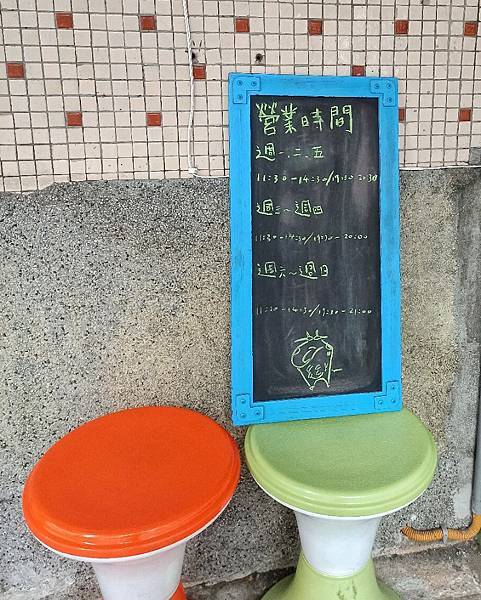 營業時間
週一、二、五
11:30-14:30/17:30-20:30
週三~週四
11:30-14:30/17:30-20:00
週六~週日
11:30-14:30/17:30-21:00